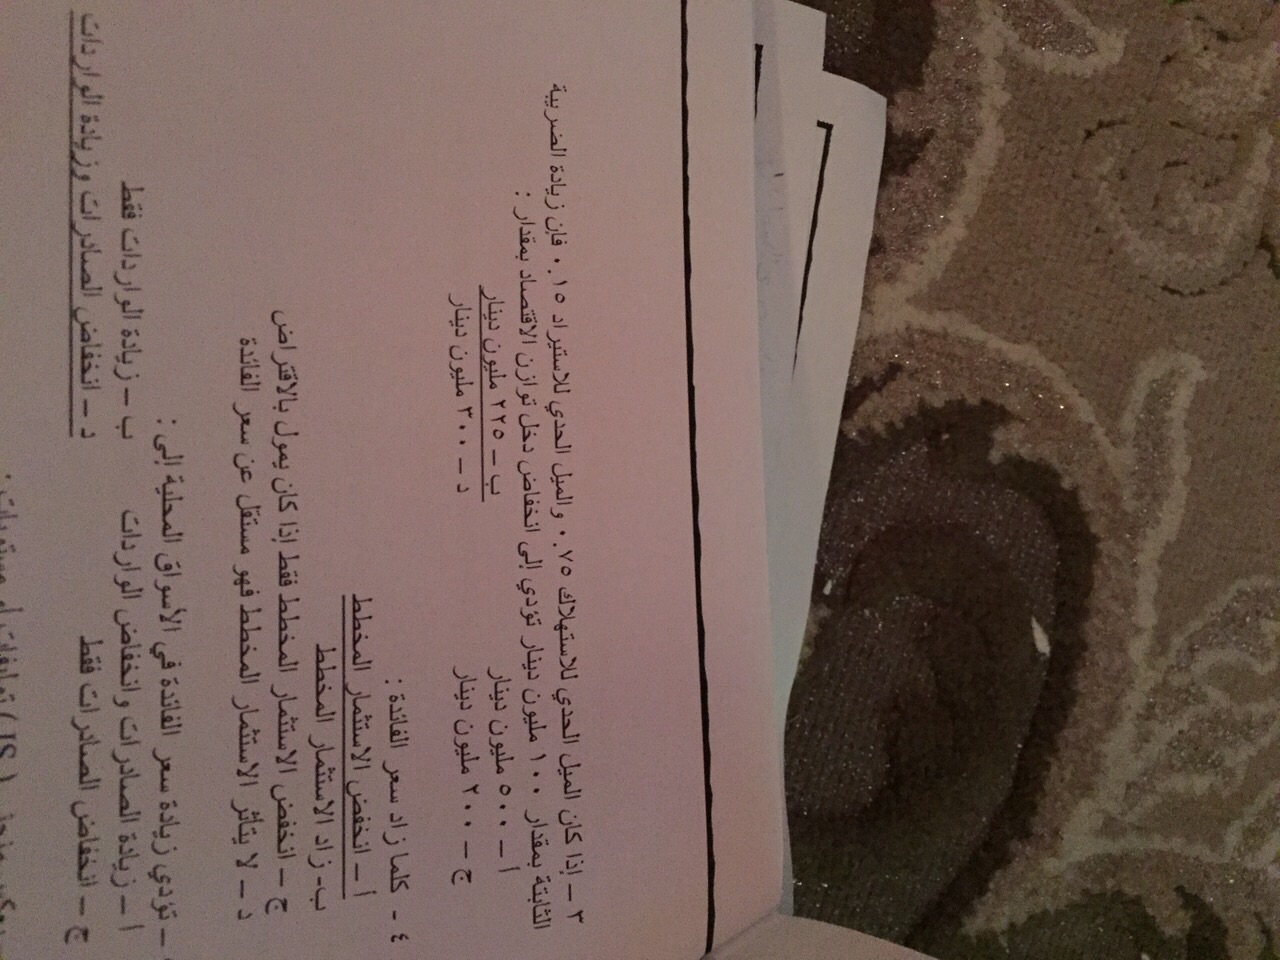 ٣ – إذا كان الميل الحدي للاستهلاك ٠.٧٥ والميل الحدي للاستيراد ٠.١٥ فإن زيادة الضريبة
الثابتة بمقدار ١٠٠ مليون دينار تؤدي إلى انخفاض دخل توازن الاقتصاد بمقدار :
أ – ٥٠٠ مليون دينار ب – ٢٢٥ مليون دينار
ج – ٢٠٠ مليون دينار د – ٣٠٠ مليون دينار
٤ - كلما زاد سعر الفائدة :
أ – انخفض الاستثمار المخطط
ب- زاد الاستثمار المخطط
ج – انخفض الاستثمار المخطط فقط إذا كان يمول بالاقتراض
د – لا يتأثر الاستثمار المخطط فهو مستقل عن سعر الفائدة
– تؤدي زيادة سعر الفائدة في الأسواق المحلية إلى :
أ – زيادة الصادرات وانخفاض الواردات ب – زيادة الواردات فقط
ج – انخفاض الصادرات فقط د – انخفاض الصادرات وزيادة الواردات
منحنى (IS)